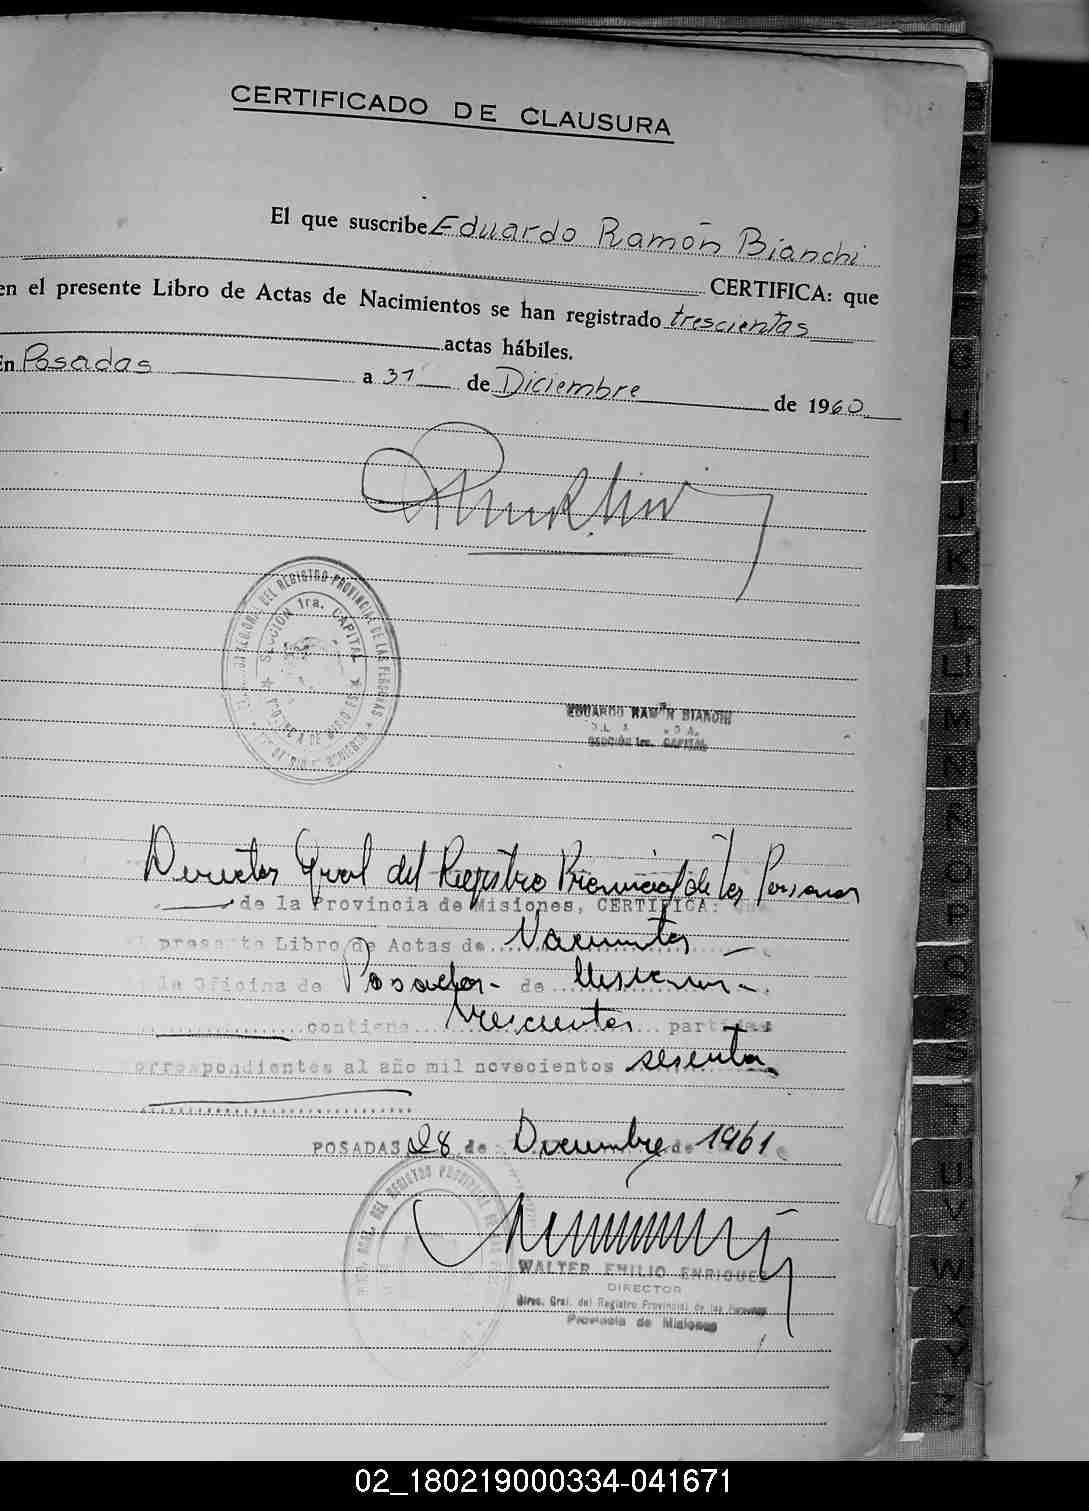 CERTIFICADO DE CLAUSURA
El que suscribe Eduardo Ramón Bianchi
CERTIFICA: que
en el presente Libro de Actas de Nacimientos se han registrado trescientas
actas hábiles.
En Posadas a 31 de Diciembre de 1960
DEL REGISTRO PROVINCIAL DE LAS PERSONAS
SECCION 1ra. CAPITAL
EDUARDO RAMON BIANCHI
SECCIÓN 1ra. CAPITAL
Director Gral del Registro Provincial de las Personas
de la Provincia de Misiones, CERTIFICA: que
el presente Libro de Actas de Nacimientos
la Oficina de Posadas - de Misiones -
contiene trescientas partidas
correspondientes al año mil novecientos sesenta
POSADAS 28 de Diciembre de 1961
DEL REGISTRO PROVINCIAL DE LAS
WALTER EMILIO ENRIQUEZ
DIRECTOR
Direc. Gral. del Registro Provincial de las Personas
Provincia de Misiones
B
C
D
E
F
G
H
I
J
K
L
LL
M
N
Ñ
O
P
Q
R
S
T
U
V
W
X
Y
Z
02_180219000334-041671